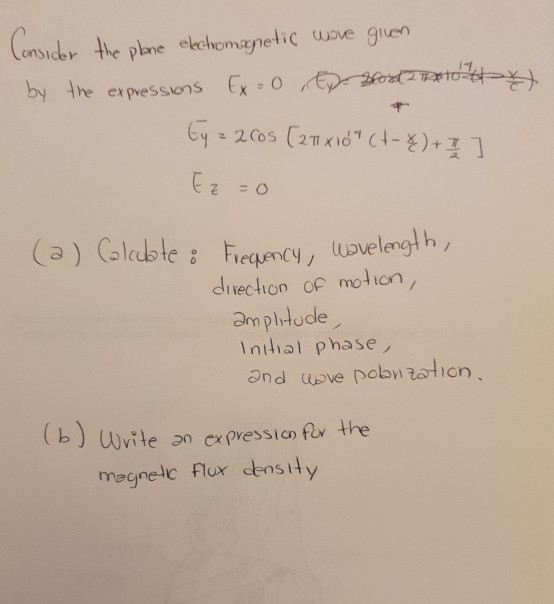 Consider the plane electromagnetic wave given
by the expressions Ex = 0 ,
Ey = 2 cos [2π×10¹⁴ (t - x/c) + π/2 ]
Ez = 0
(a) Calculate : Frequency, wavelength,
direction of motion,
amplitude,
initial phase,
and wave polarization.
(b) Write an expression for the
magnetic flux density